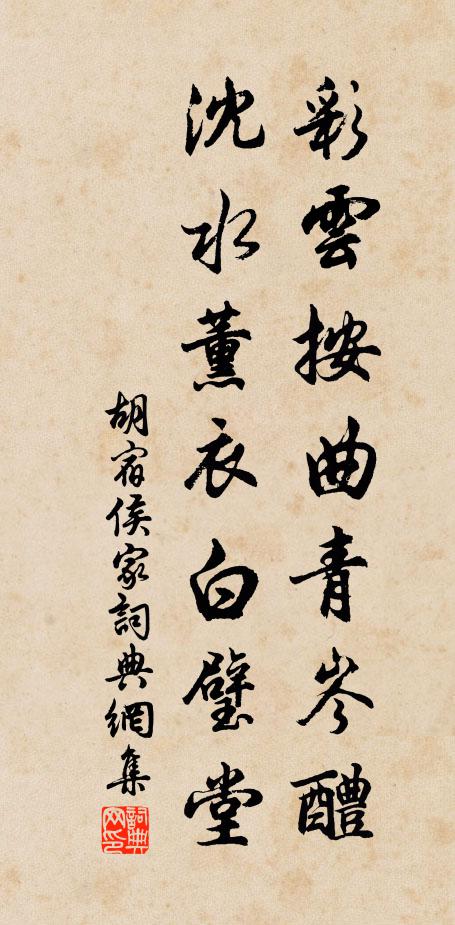 彩雲按曲青岑醴
沈水薰衣白璧堂
胡宿侯家詞典網集
詞典網印